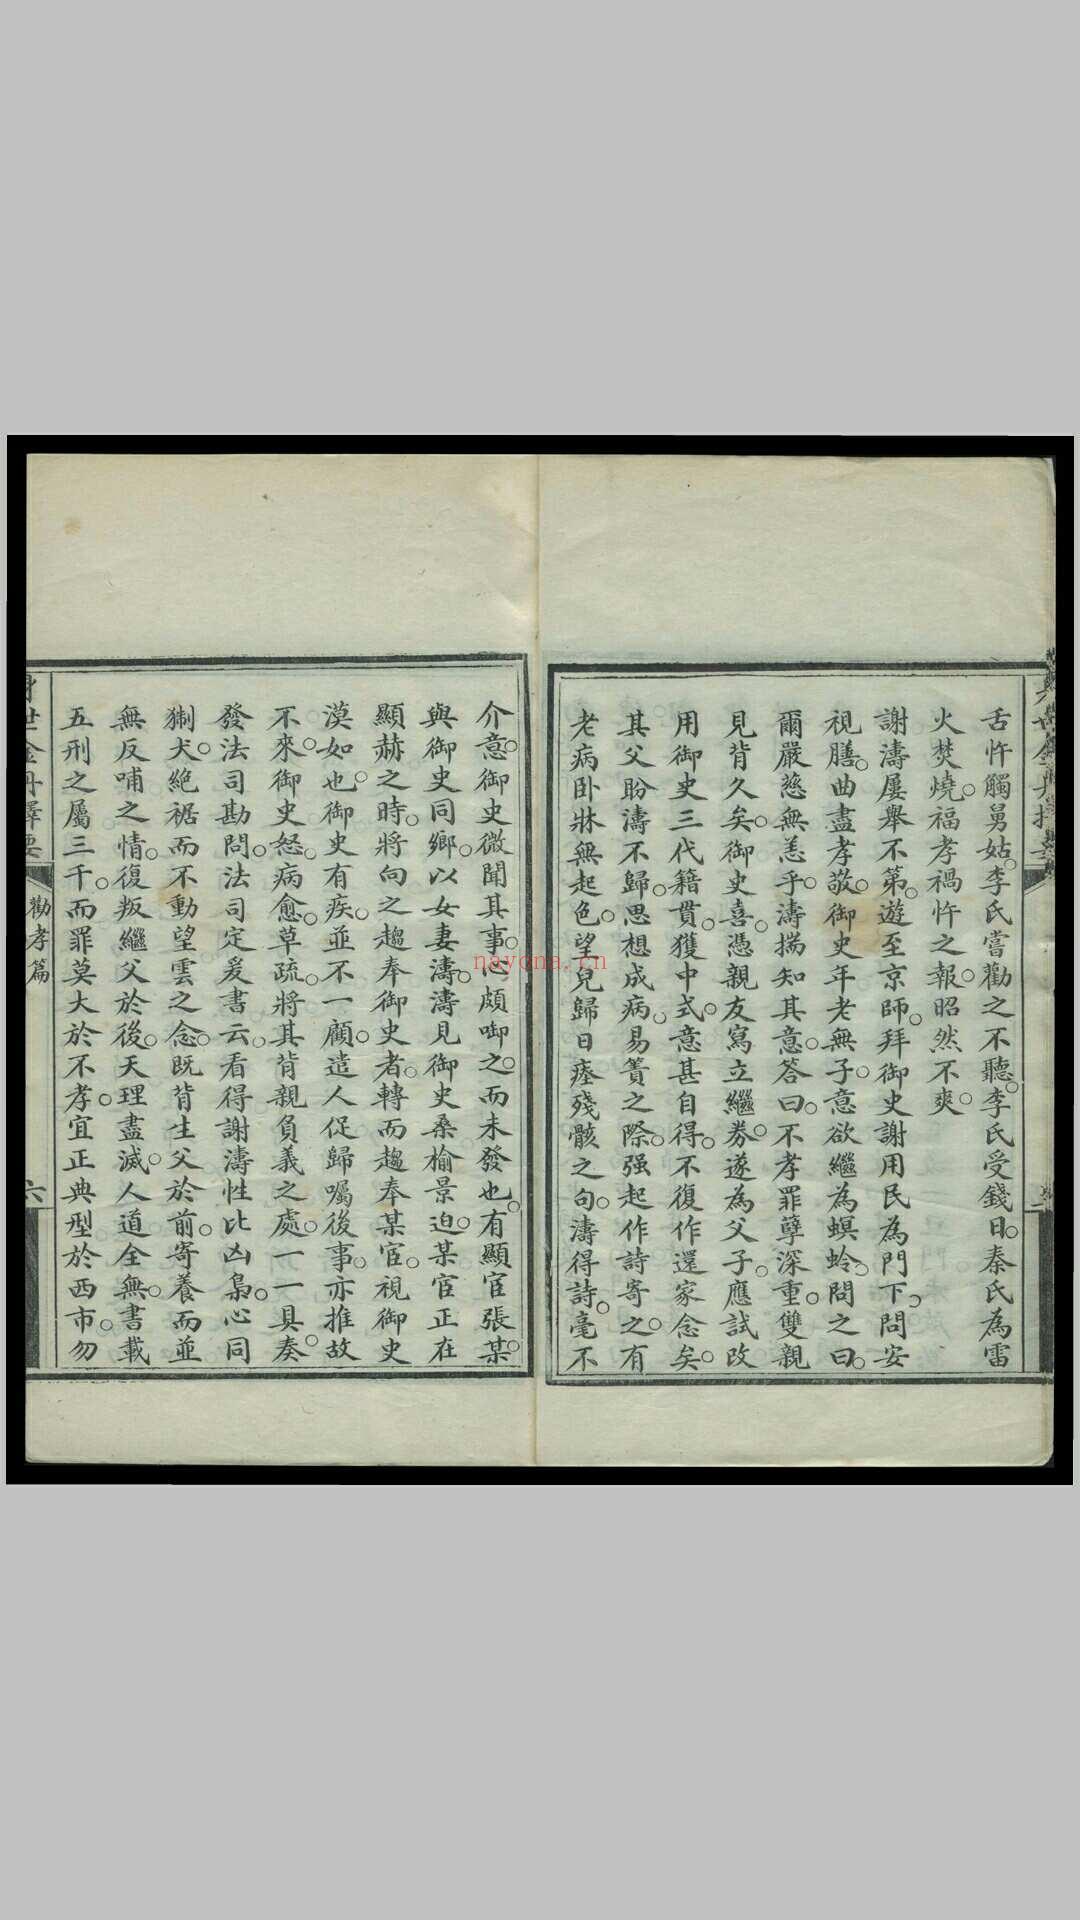 舌忤觸舅姑。李氏嘗勸之不聽。李氏受錢日。秦氏為雷
火焚燒。福孝禍忤之報。昭然不爽。
謝濤屢舉不第。遊至京師。拜御史謝用民為門下。問安
視膳。曲盡孝敬。御史年老無子。意欲繼為螟蛉。問之曰。
爾嚴慈無恙乎。濤揣知其意。答曰。不孝罪孽深重。雙親
見背久矣。御史喜。憑親友寫立繼券。遂為父子。應試改
用御史三代籍貫。獲中式。意甚自得。不復作還家念矣。
其父盼濤不歸。思想成病。易簀之際。强起作詩寄之。有
老病卧牀無起色。望兒歸日瘞殘骸之句。濤得詩。毫不
介意。御史微聞其事。心頗啣之。而未發也。有顯宦張某。
與御史同鄉。以女妻濤。濤見御史桑榆景迫。某宦正在
顯赫之時。將向之趨奉御史者。轉而趨奉某宦。視御史
漠如也。御史有疾。並不一顧。遣人促歸囑後事。亦推故
不來。御史怒。病愈。草疏。將其背親負義之處。一一具奏。
發法司勘問。法司定爰書云。看得謝濤性比凶梟。心同
猘犬。絕裾而不動望雲之念。既背生父於前。寄養而並
無反哺之情。復叛繼父於後。天理盡滅。人道全無。書載
五刑之屬三千。而罪莫大於不孝。宜正典型於西市。勿
身世金丹擇要
勸孝篇
六
nayona.cn